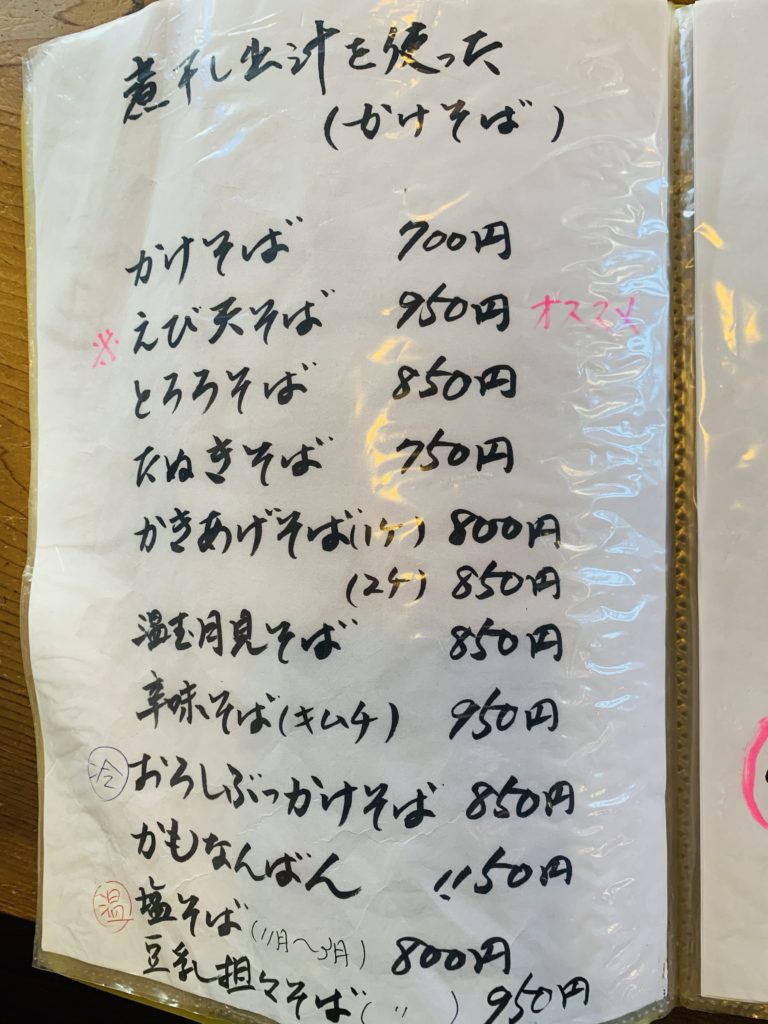 煮干し出汁を使った
(かけそば)
かけそば 700円
※えび天そば 950円 オススメ
とろろそば 850円
たぬきそば 750円
かきあげそば(1ケ) 800円
(2ケ) 850円
温玉月見そば 850円
辛味そば(キムチ) 950円
冷 おろしぶっかけそば 850円
かもなんばん 1150円
温 塩そば(11月〜3月) 800円
豆乳担々そば(〃) 950円